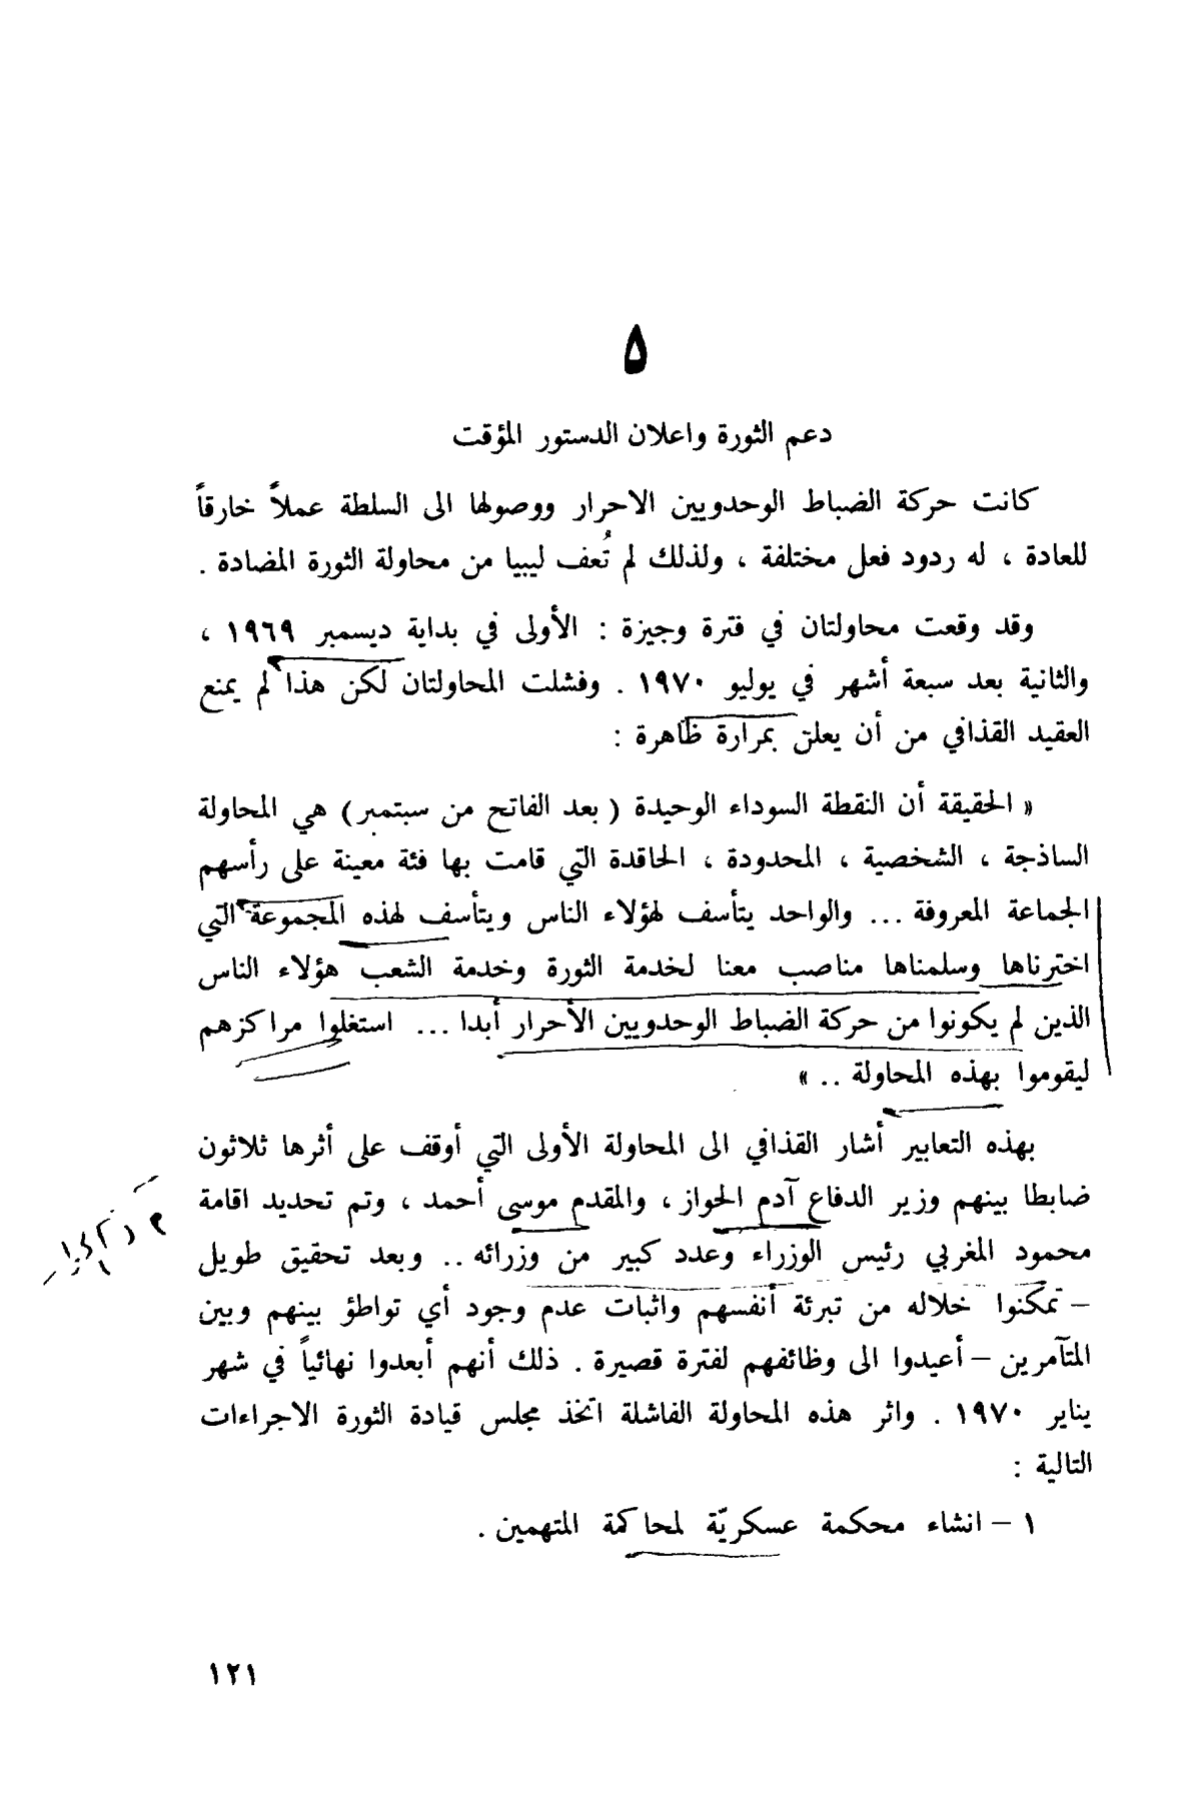 ٥
دعم الثورة واعلان الدستور المؤقت
كانت حركة الضباط الوحدويين الاحرار ووصولها الى السلطة عملاً خارقاً
للعادة ، له ردود فعل مختلفة ، ولذلك لم تُعف ليبيا من محاولة الثورة المضادة .
وقد وقعت محاولتان في فترة وجيزة : الأولى في بداية ديسمبر ١٩٦٩ ،
والثانية بعد سبعة أشهر في يوليو ١٩٧٠ . وفشلت المحاولتان لكن هذا لم يمنع
العقيد القذافي من أن يعلن بمرارة ظاهرة :
« الحقيقة أن النقطة السوداء الوحيدة ( بعد الفاتح من سبتمبر ) هي المحاولة
الساذجة ، الشخصية ، المحدودة ، الحاقدة التي قامت بها فئة معينة على رأسهم
الجماعة المعروفة ... والواحد يتأسف لهؤلاء الناس ويتأسف لهذه المجموعة التي
اخترناها وسلمناها مناصب معنا لخدمة الثورة وخدمة الشعب هؤلاء الناس
الذين لم يكونوا من حركة الضباط الوحدويين الأحرار أبدا ... استغلوا مراكزهم
ليقوموا بهذه المحاولة .. »
بهذه التعابير أشار القذافي الى المحاولة الأولى التي أوقف على أثرها ثلاثون
ضابطا بينهم وزير الدفاع آدم الحواز ، والمقدم موسى أحمد ، وتم تحديد اقامة
محمود المغربي رئيس الوزراء وعدد كبير من وزرائه .. وبعد تحقيق طويل
– تمكنوا خلاله من تبرئة أنفسهم واثبات عدم وجود أي تواطؤ بينهم وبين
المتآمرين – أعيدوا الى وظائفهم لفترة قصيرة . ذلك أنهم أبعدوا نهائياً في شهر
يناير ١٩٧٠ . واثر هذه المحاولة الفاشلة اتخذ مجلس قيادة الثورة الاجراءات
التالية :
١ – انشاء محكمة عسكريّة لمحاكمة المتهمين .
١٢١